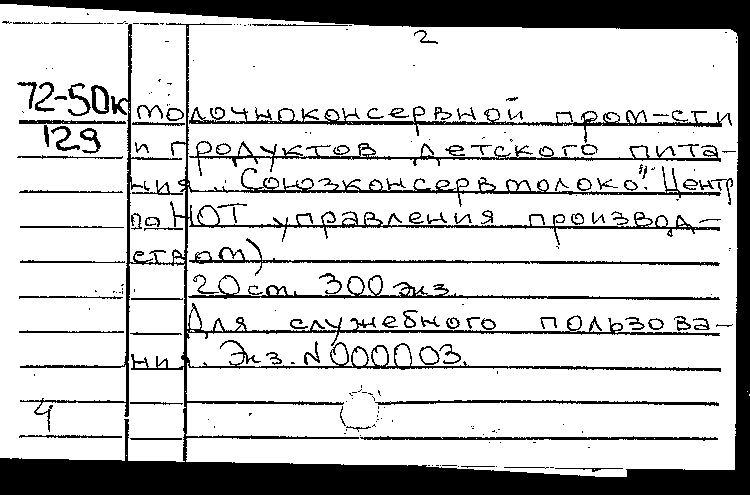 2
72-50к молочноконсервной пром-сти
129 и продуктов детского пита-
ния „Союзконсервмолоко". Центр
по НОТ управления производ-
ством).
20 ст. 300 экз.
Для служебного пользова-
ния. Экз. N 000003.
4